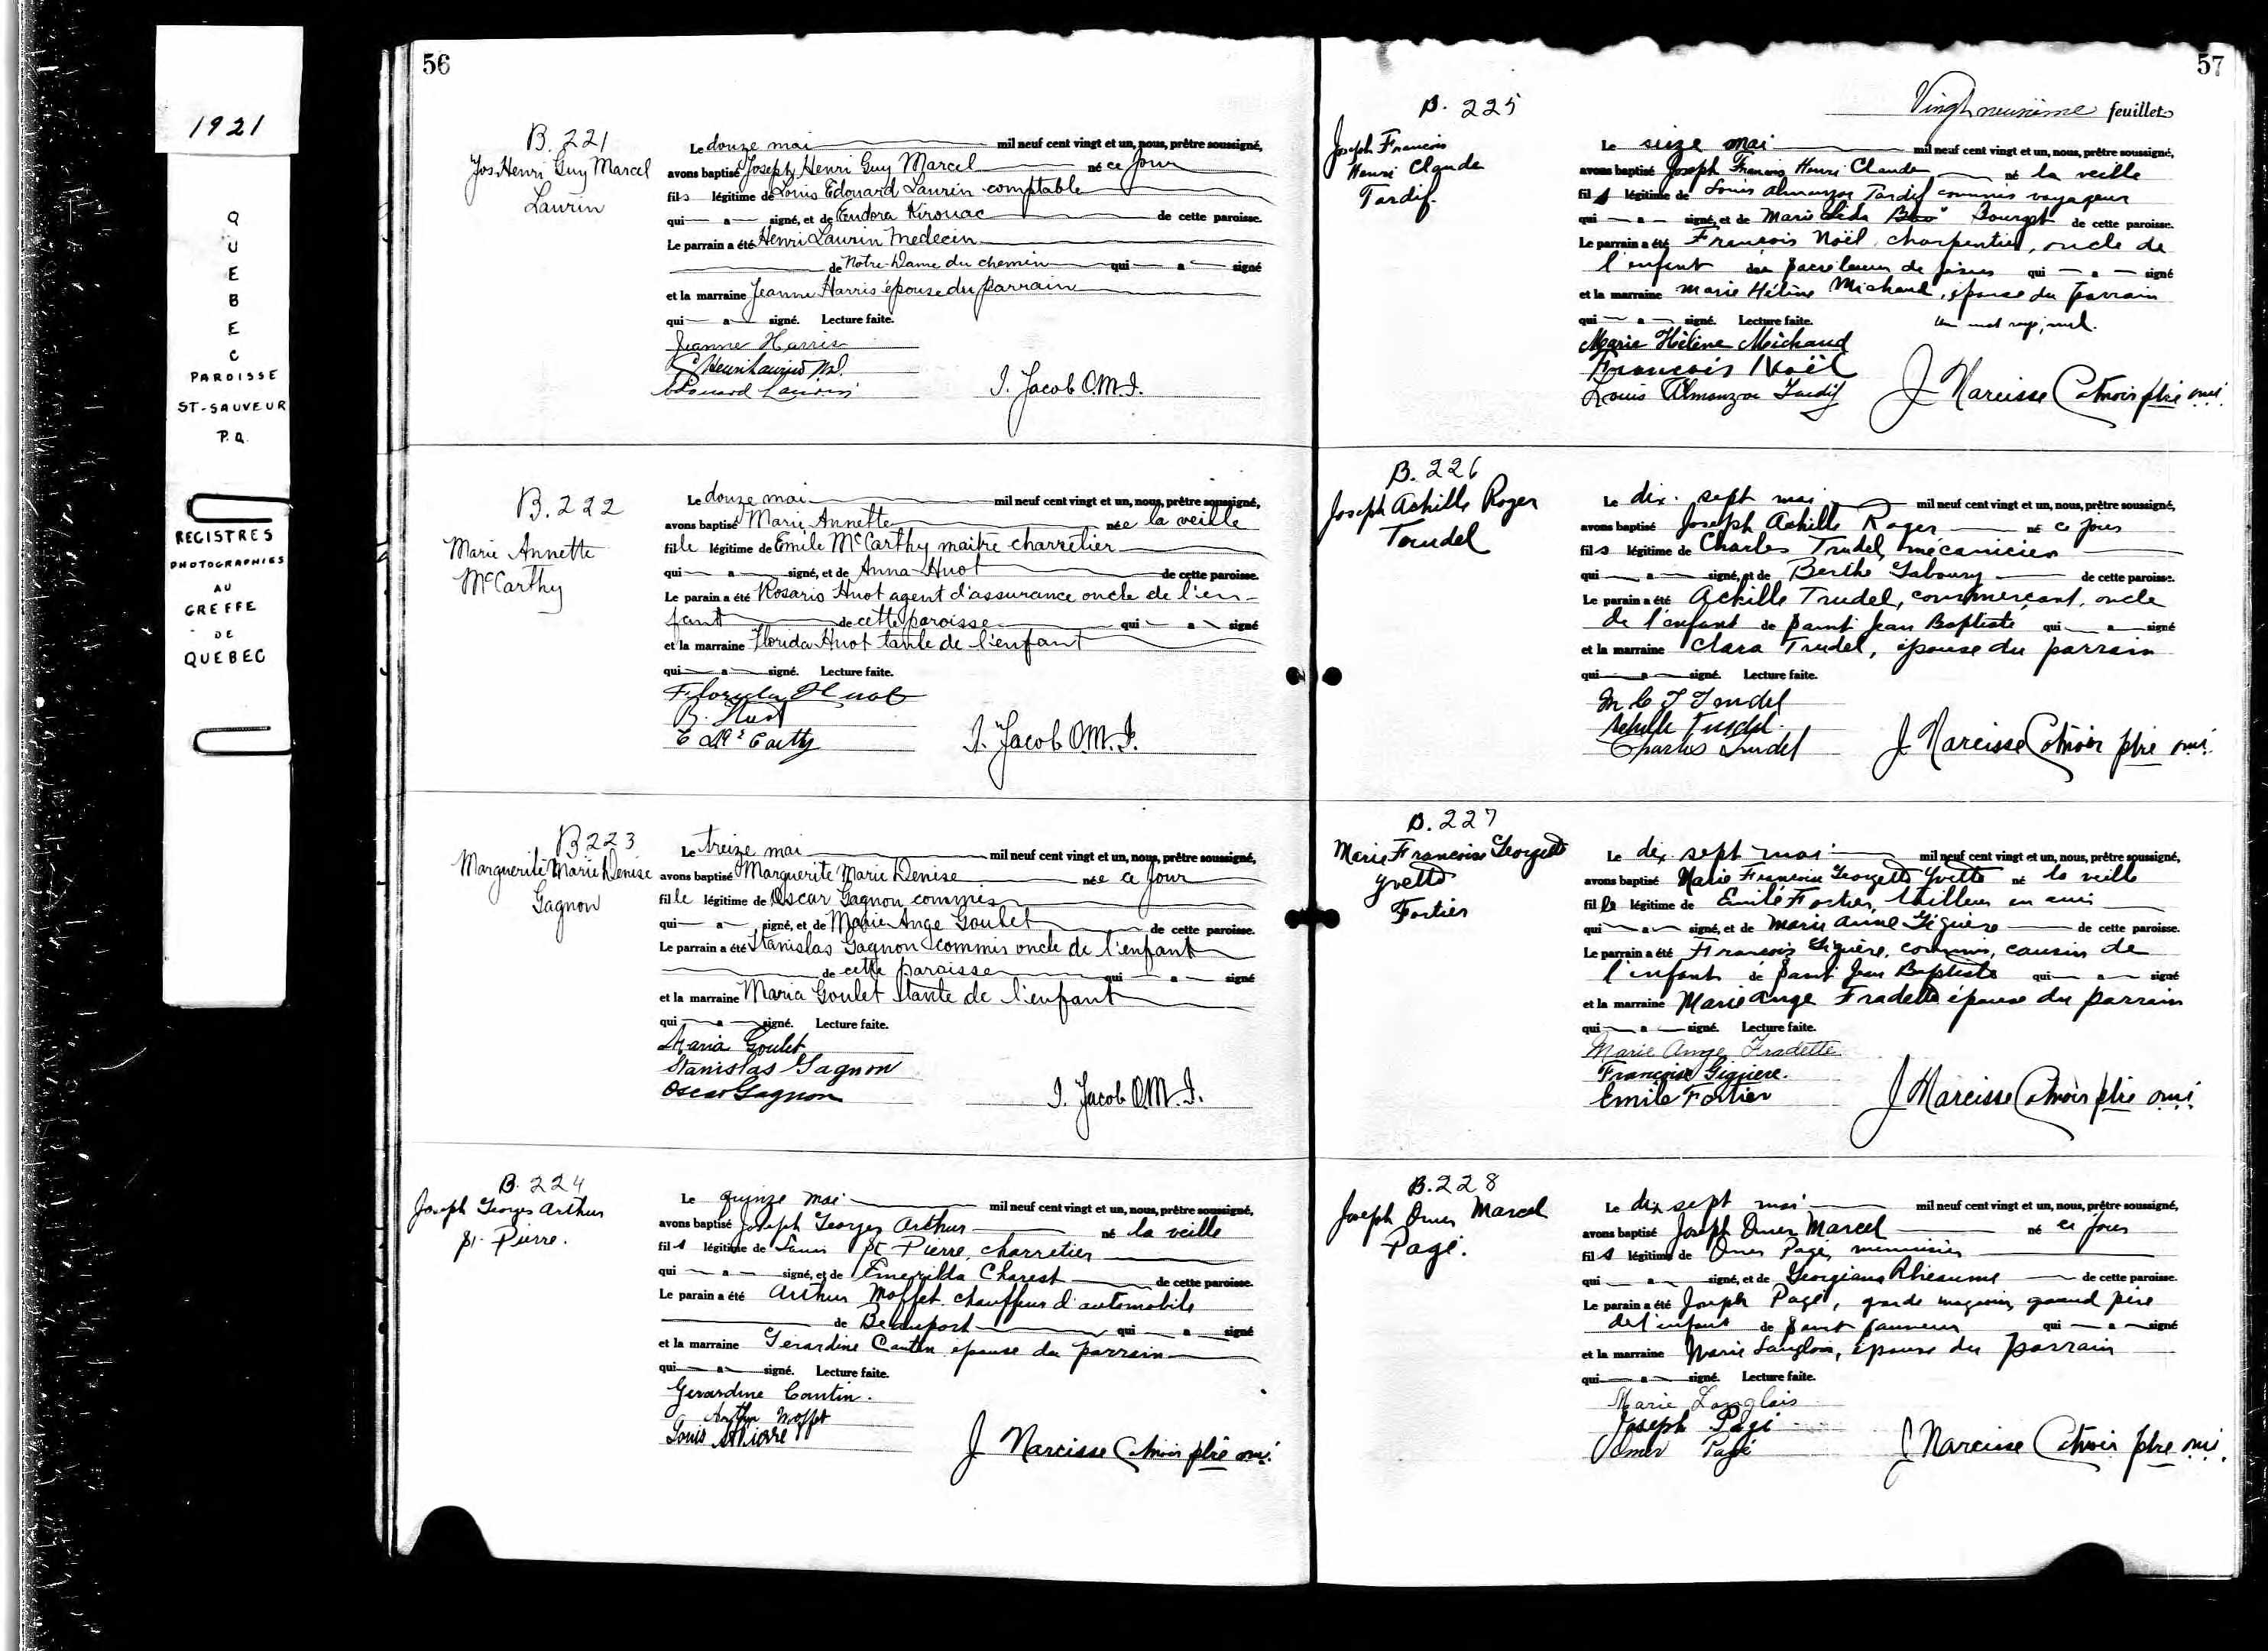 1921
QUEBEC
PAROISSE
ST-SAUVEUR
P.Q.
REGISTRES
PHOTOGRAPHIES
AU
GREFFE
DE
QUEBEC
56
B. 221
Jos. Henri Guy Marcel
Laurin
Le douze mai mil neuf cent vingt et un, nous, prêtre soussigné,
avons baptisé Joseph Henri Guy Marcel né ce jour
fils légitime de Louis Edouard Laurin comptable
qui a signé, et de Eudora Kirouac de cette paroisse.
Le parrain a été Henri Laurin Medecin
de Notre-Dame du chemin qui a signé
et la marraine Jeanne Harris épouse du parrain
qui a signé. Lecture faite.
Jeanne Harris
Henri Laurin M.D.
Edouard Laurin
I. Jacob O.M.I.
B. 222
Marie Annette
McCarthy
Le douze mai mil neuf cent vingt et un, nous, prêtre soussigné,
avons baptisé Marie Annette née la veille
fille légitime de Emile McCarthy maitre charretier
qui a signé, et de Anna Huot de cette paroisse.
Le parain a été Rosario Huot agent d'assurance oncle de l'en-
fant de cette paroisse qui a signé
et la marraine Florida Huot tante de l'enfant
qui a signé. Lecture faite.
Florida Huot
R. Huot
E McCarthy
I. Jacob O.M.I.
B 223
Marguerite Marie Denise
Gagnon
Le treize mai mil neuf cent vingt et un, nous, prêtre soussigné,
avons baptisé Marguerite Marie Denise née ce jour
fille légitime de Oscar Gagnon commis
qui a signé, et de Marie Ange Goulet de cette paroisse.
Le parrain a été Stanislas Gagnon commis oncle de l'enfant
de cette paroisse qui a signé
et la marraine Maria Goulet tante de l'enfant
qui a signé. Lecture faite.
Maria Goulet
Stanislas Gagnon
Oscar Gagnon
I. Jacob O.M.I.
B. 224
Joseph Georges Arthur
St. Pierre.
Le quinze mai mil neuf cent vingt et un, nous, prêtre soussigné,
avons baptisé Joseph Georges Arthur né la veille
fils légitime de Louis St Pierre, charretier
qui a signé, et de Emerilda Charest de cette paroisse.
Le parain a été Arthur Moffet chauffeur d'automobile
de Beauport qui a signé
et la marraine Gerardine Cantin épouse du parrain
qui a signé. Lecture faite.
Gerardine Cantin.
Arthur Moffet
Louis St Pierre
J Narcisse Cotnoir ptre omi.
57
Vingt neuvième feuillet
B. 225
Joseph Francois
Henri Claude
Tardif.
Le seize mai mil neuf cent vingt et un, nous, prêtre soussigné,
avons baptisé Joseph Francois Henri Claude né la veille
fils légitime de Louis Almanzor Tardif commis voyageur
qui a signé, et de Marie Lida Bourget de cette paroisse.
Le parrain a été François Noël, charpentier, oncle de
l'enfant de Sacré Coeur de Jésus qui a signé
et la marraine Marie Hélène Michaud, épouse du parrain
qui a signé. Lecture faite. Un mot rayé, nul.
Marie Hélène Michaud
François Noël
Louis Almanzor Tardif
J Narcisse Cotnoir ptre omi.
B. 226
Joseph Achille Roger
Trudel
Le dix-sept mai mil neuf cent vingt et un, nous, prêtre soussigné,
avons baptisé Joseph Achille Roger né ce jour
fils légitime de Charles Trudel, mécanicien
qui a signé, et de Berthe Laboury de cette paroisse.
Le parain a été Achille Trudel, commerçant, oncle
de l'enfant de Saint Jean Baptiste qui a signé
et la marraine Clara Trudel, épouse du parrain
qui a signé. Lecture faite.
M C T Trudel
Achille Trudel.
Charles Trudel
J Narcisse Cotnoir ptre omi.
B. 227
Marie Francoise Georgette
Yvette
Fortier
Le dix sept mai mil neuf cent vingt et un, nous, prêtre soussigné,
avons baptisé Marie Francoise Georgette Yvette né la veille
fille légitime de Emile Fortier, tailleur en cuir
qui a signé, et de Marie Anne Giguère de cette paroisse.
Le parrain a été François Giguère, commis, cousin de
l'enfant de Saint Jean Baptiste qui a signé
et la marraine Marie Ange Fradette épouse du parrain
qui a signé. Lecture faite.
Marie Ange Fradette
François Giguere.
Emile Fortier
J Narcisse Cotnoir ptre omi.
B. 228
Joseph Omer Marcel
Pagé.
Le dix sept mai mil neuf cent vingt et un, nous, prêtre soussigné,
avons baptisé Joseph Omer Marcel né ce jour
fils légitime de Omer Pagé, menuisier
qui a signé, et de Georgiana Rhéaume de cette paroisse.
Le parain a été Joseph Pagé, garde magasin, grand père
de l'enfant de Saint Sauveur qui a signé
et la marraine Marie Langlois, épouse du parrain
qui a signé. Lecture faite.
Marie Langlais
Joseph Pagé
Omer Pagé
J Narcisse Cotnoir ptre omi.